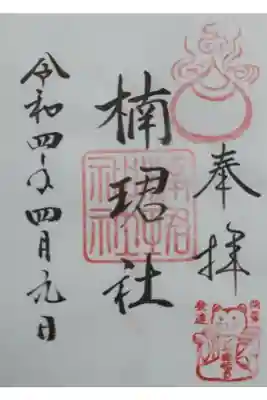 奉拝
楠珺社
令和四年四月九日